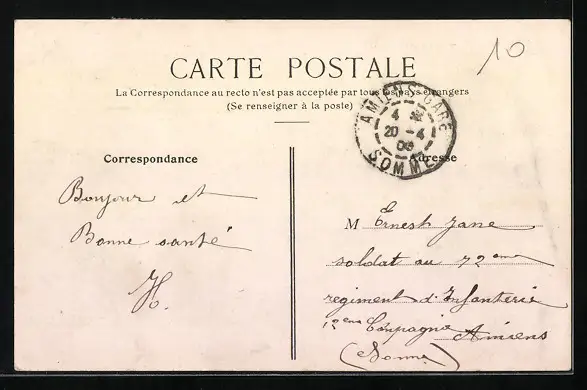 10
CARTE POSTALE
La Correspondance au recto n'est pas acceptée par tous les pays étrangers
(Se renseigner à la poste)
AMIENS GARE
4
20 - 4
SOMME
Correspondance
Adresse
Bonjour et
Bonne santé
H.
M Ernest Jane
soldat au 72eme
regiment d'Infanterie
Compagnie Amiens
(Somme)